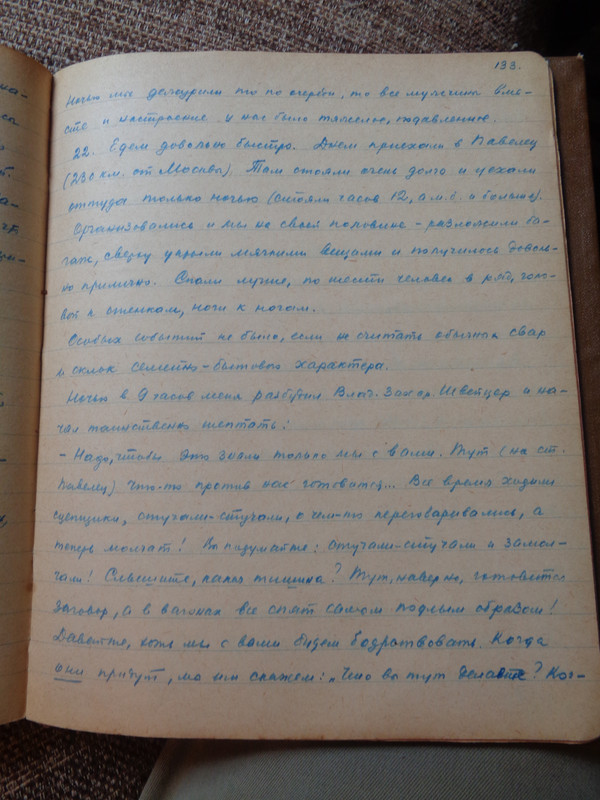 133.
Ночью мы дежурили то по очереди, то все мужчины вме-
сте и настроение у нас было тяжелое, подавленное.
22. Едем довольно быстро. Днем приехали в Павелец
(230 км. от Москвы). Там стояли очень долго и уехали
оттуда только ночью (стояли часов 12, а м.б. и больше).
Организовались и мы на своей половине - разложили ба-
гаж, сверху укрыли мягкими вещами и получилось доволь-
но прилично. Спали лучше, по шести человек в ряд, голо-
вой к стенкам, ноги к ногам.
Особых событий не было, если не считать обычных свар
и склок семейно-бытового характера.
Ночью в 9 часов меня разбудил Влад. Захар. Швейцер и на-
чал таинственно шептать:
- Надо, чтобы это знали только мы с вами. Тут (на ст.
Павелец) что-то против нас готовится... Все время ходили
сцепщики, стучали-стучали, о чем-то переговаривались, а
теперь молчат! Вы подумайте: стучали-стучали и замол-
чали! Слышите, какая тишина? Тут, наверно, готовится
заговор, а в вагонах все спят самым подлым образом!
Давайте, хоть мы с вами будем бодрствовать. Когда
они придут, мы им скажем: „Что вы тут делаете? Ког-
на-